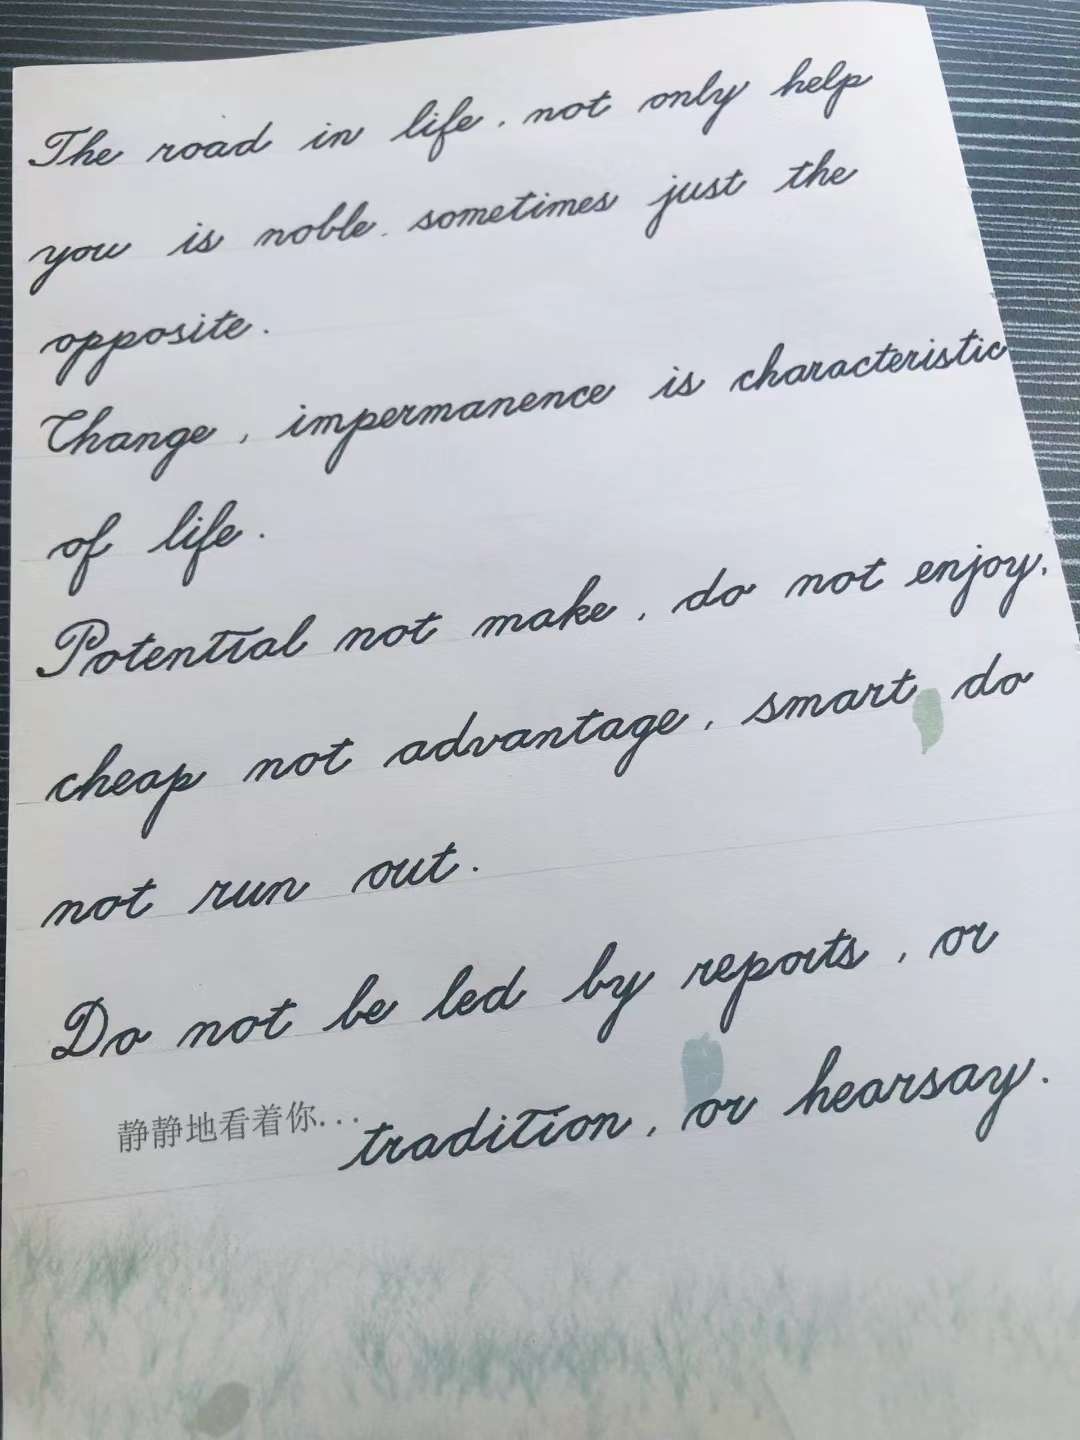 The road in life, not only help
you is noble. sometimes just the
opposite.
Change, impermanence is characteristic
of life.
Potential not make, do not enjoy,
cheap not advantage, smart do
not run out.
Do not be led by reports, or
静静地看着你...
tradition, or hearsay.